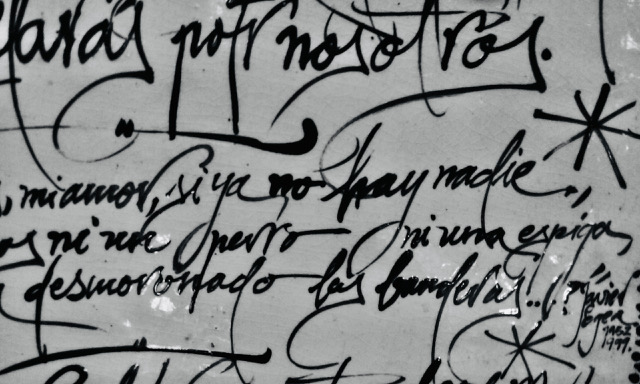 por nosotros.
"
, mi amor, si ya no hay nadie
ni un perro ni una espiga,
desmoronado las banderas...!?"
Javier
Egea
1952
1999.